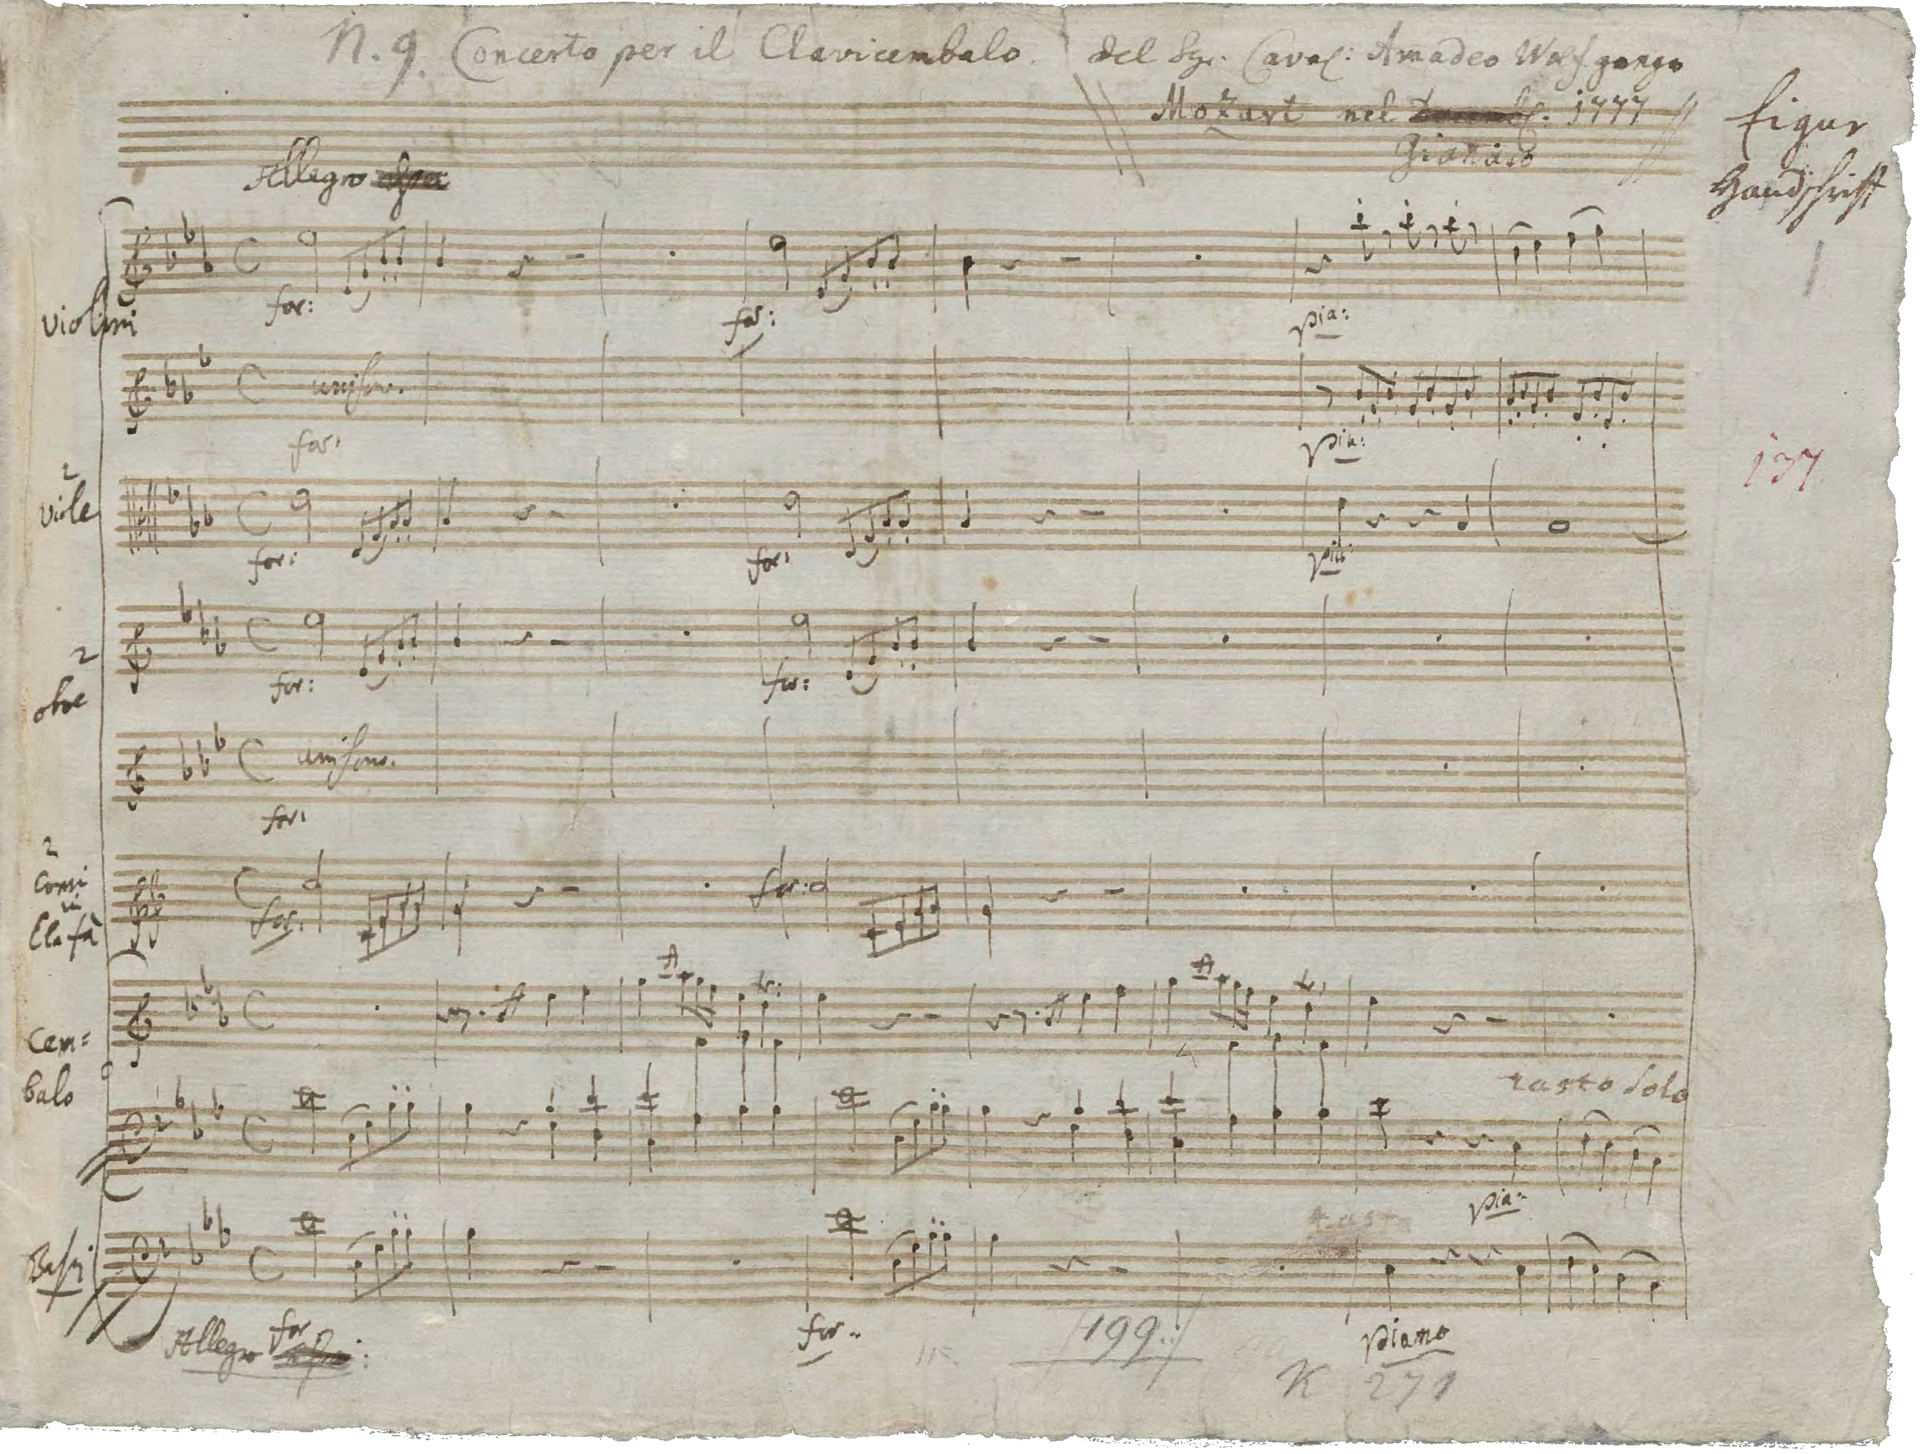 N. 9. Concerto per il Clavicembalo. del Sgr. Caval: Amadeo Wolfgango
Mozart nel 1777
Allegro
Handschrift
1
for: for: pia:
Violini
unison.
for: pia:
137
2
Viole
for: for: pia:
2
oboe
for: for:
unisono.
for:
2
Corni
in
Elafà
for: for:
tr: tr:
Cem=
balo
tasto solo
pia:
tasto
Bassi
Allegro for for: piano
199.
K 271